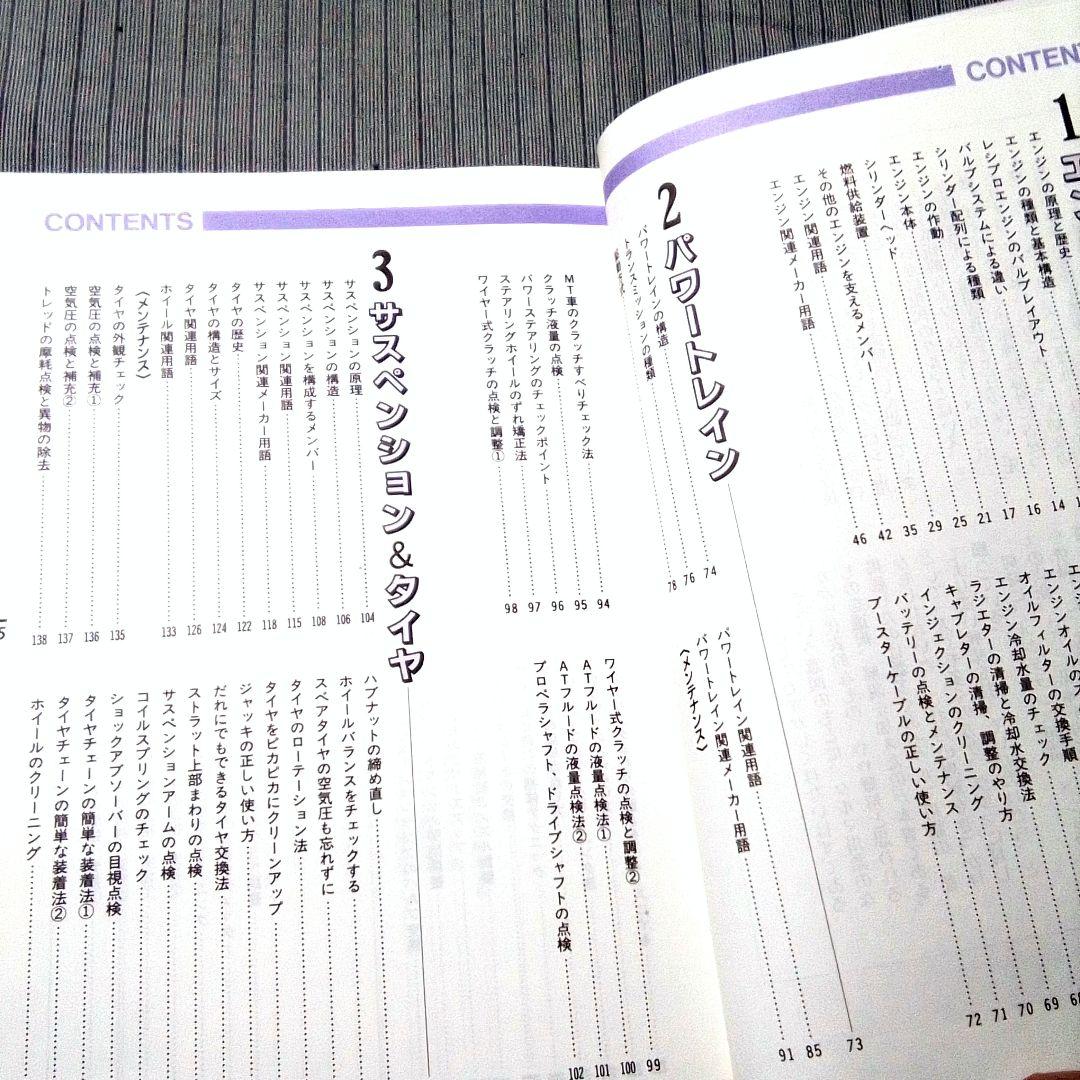 CONTEN
1
エンジンの原理と歴史
エンジンの種類と基本構造
レシプロエンジンのバルブレイアウト
バルブシステムによる違い 14
シリンダー配列による種類 16
エンジンの作動 17
エンジン本体 21
シリンダーヘッド 25
燃料供給装置 29
その他のエンジンを支えるメンバー 35
エンジン関連用語 42
エンジン関連メーカー用語 46
エンジンオイルの
オイルフィルターの交換手順
エンジン冷却水量のチェック
ラジエターの清掃と冷却水交換法
キャブレターの清掃、調整のやり方 69
インジェクションのクリーニング 70
バッテリーの点検とメンテナンス 71
ブースターケーブルの正しい使い方 72
2 パワートレイン 73
パワートレインの構造 74
トランスミッションの種類 76
78
パワートレイン関連用語 85
パワートレイン関連メーカー用語 91
〈メンテナンス〉
CONTENTS
MT車のクラッチすべりチェック法 94
クラッチ液量の点検 95
パワーステアリングのチェックポイント 96
ステアリングホイールのずれ矯正法 97
ワイヤー式クラッチの点検と調整① 98
ワイヤー式クラッチの点検と調整② 99
ATフルードの液量点検法① 100
ATフルードの液量点検法② 101
プロペラシャフト、ドライブシャフトの点検 102
3 サスペンション&タイヤ
サスペンションの原理 104
サスペンションの構造 106
サスペンションを構成するメンバー 108
サスペンション関連用語 115
サスペンション関連メーカー用語 118
タイヤの歴史 122
タイヤの構造とサイズ 124
タイヤ関連用語 126
ホイール関連用語 133
〈メンテナンス〉
タイヤの外観チェック 135
空気圧の点検と補充① 136
空気圧の点検と補充② 137
トレッドの摩耗点検と異物の除去 138
ハブナットの締め直し
ホイールバランスをチェックする
スペアタイヤの空気圧も忘れずに
タイヤのローテーション法
タイヤをピカピカにクリーンアップ
ジャッキの正しい使い方
だれにでもできるタイヤ交換法
ストラット上部まわりの点検
サスペンションアームの点検
コイルスプリングのチェック
ショックアブソーバーの目視点検
タイヤチェーンの簡単な装着法①
タイヤチェーンの簡単な装着法②
ホイールのクリーニング